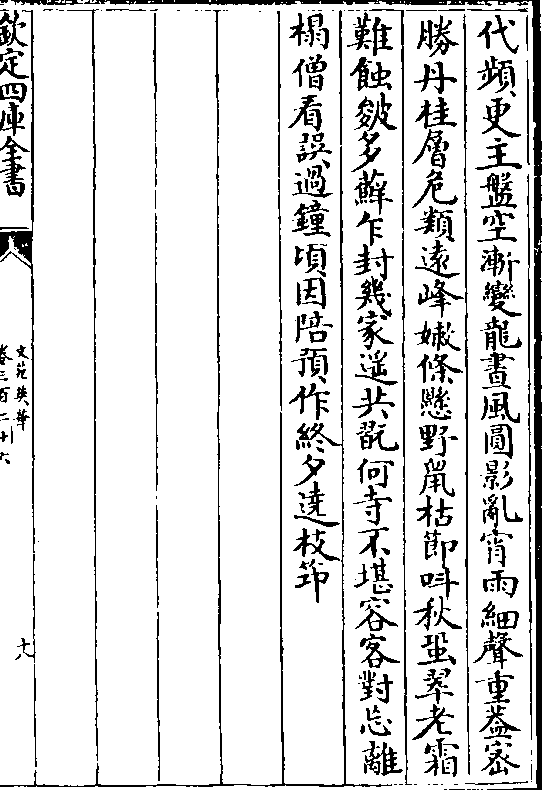 代頻更主盤空漸變龍晝風圓影亂宵雨細聲重葢宻
勝丹桂層危類逺峰嫩條懸野䑕枯節呌秋蛩翠老霜
難蝕皴多蘚乍封幾家遥共翫何寺不堪容客對忘離
榻僧看誤過鐘頃因陪預作終夕遶枝筇
欽定四庫全書
文苑英華
卷三百二十六
十八